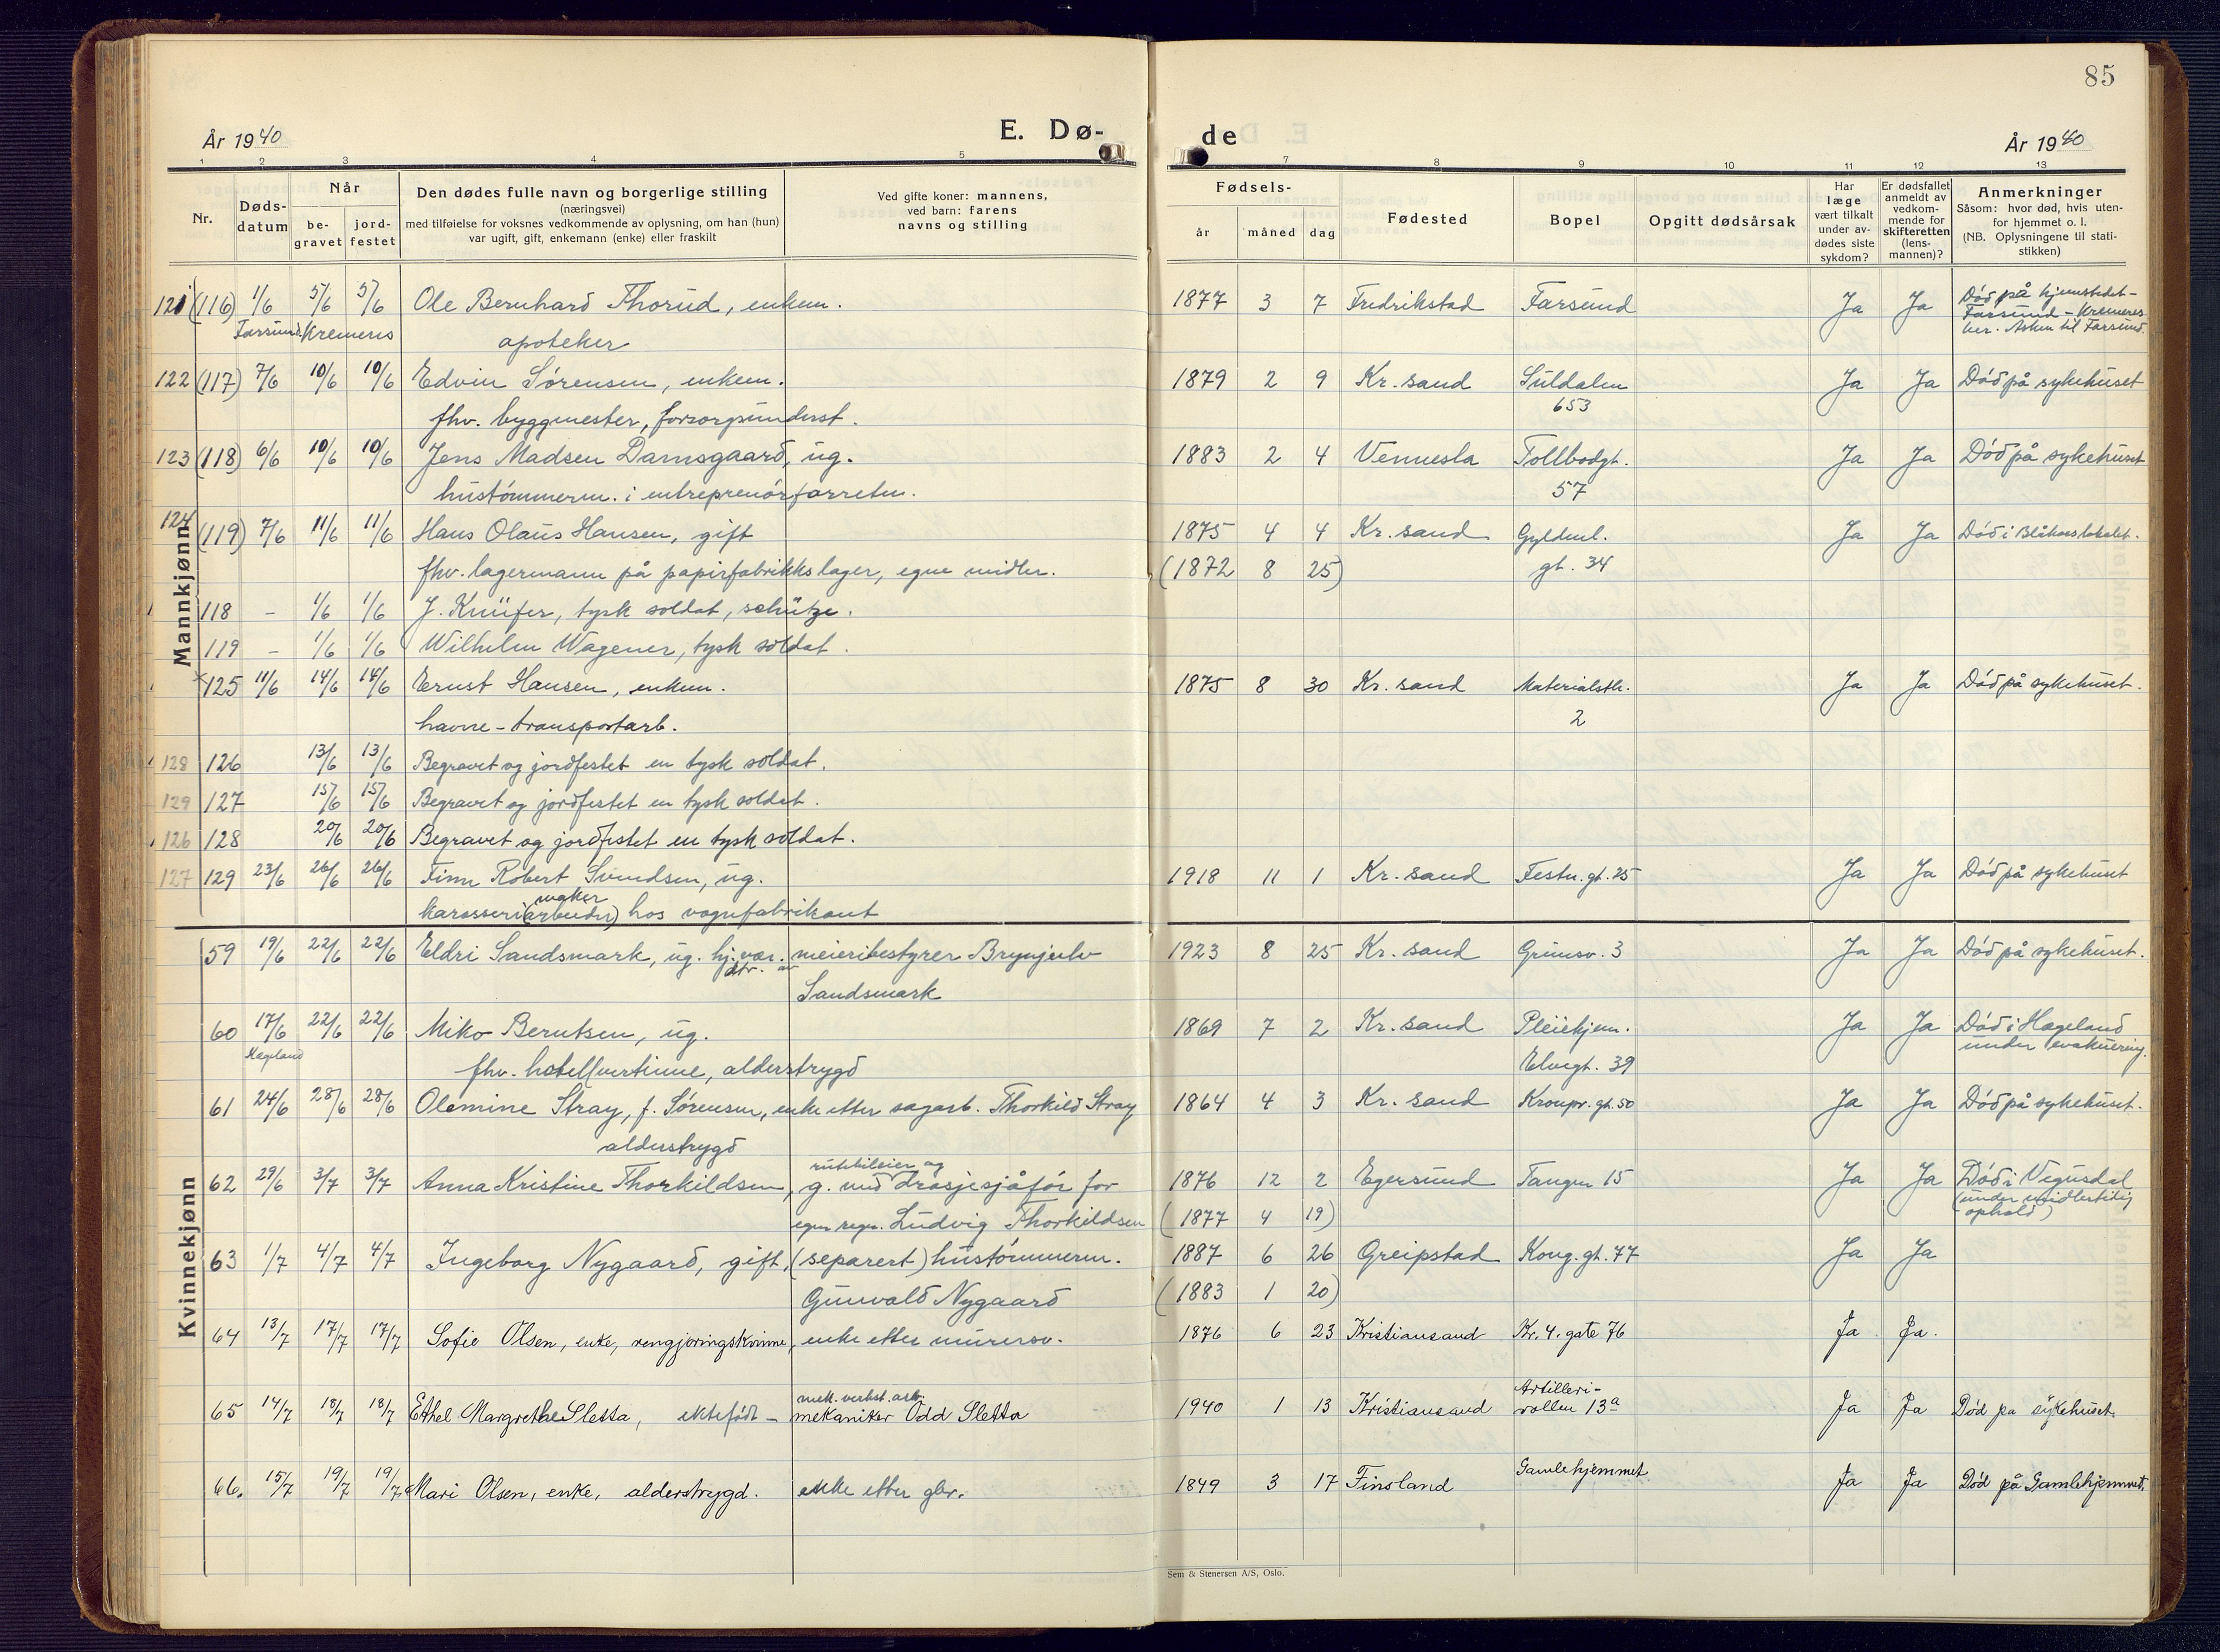 85
År 1940
E. Dø-
de
År 1940
1 2 3 4 5 7 8 9 10 11 12 13
Nr.
Døds-
datum
Når
be-
gravet
jord-
festet
Den dødes fulle navn og borgerlige stilling
(næringsvei)
med tilføielse for voksnes vedkommende av oplysning, om han (hun)
var ugift, gift, enkemann (enke) eller fraskilt
Ved gifte koner: mannens,
ved barn: farens
navns og stilling
Fødsels-
år måned dag
Fødested
Bopel
Opgitt dødsårsak
Har
læge
vært tilkalt
under av-
dødes siste
sykdom?
Er dødsfallet
anmeldt av
vedkom-
mende for
skifteretten
(lens-
mannen)?
Anmerkninger
Såsom: hvor død, hvis uten-
for hjemmet o. l.
(NB. Oplysningene til stati-
stikken)
Mannkjønn
121 (116) 1/6 5/6 5/6 Ole Bernhard Thorud, enkem. 1877 3 7 Fredrikstad Farsund Ja Ja Død på hjemstedet -
Farsund Kremeres apoteker Farsund - Kremeres
her. Asken til Farsund.
122 (117) 7/6 10/6 10/6 Edvin Sørensen, enkem. 1879 2 9 Kr. sand Suldalen Ja Ja Død på sykehuset
fhv. byggmester, forsorgsunderst. 653
123 (118) 6/6 10/6 10/6 Jens Madsen Damsgaard, ug. 1883 2 4 Vennesla Tollbodgt. Ja Ja Død på sykehuset
hustømmerm. i entreprenørforretn. 57
124 (119) 7/6 11/6 11/6 Hans Olaus Hansen, gift 1875 4 4 Kr. sand Gyldenl. Ja Ja Død i Blåkorslokalet.
fhv. lagermann på papirfabrikks lager, egne midler. (1872 8 25) gt. 34
118 - 1/6 1/6 J. Knüfer, tysk soldat, schütze.
119 - 1/6 1/6 Wilhelm Wagener, tysk soldat.
125 11/6 14/6 14/6 Ernst Hansen, enkem. 1875 8 30 Kr. sand Materialstr. Ja Ja Død på sykehuset.
havne-transportarb. 2
128 126 13/6 13/6 Begravet og jordfestet en tysk soldat.
129 127 15/6 15/6 Begravet og jordfestet en tysk soldat.
126 128 20/6 20/6 Begravet og jordfestet en tysk soldat.
127 129 23/6 26/6 26/6 Finn Robert Svendsen, ug. 1918 11 1 Kr. sand Festn. gt. 25 Ja Ja Død på sykehuset
maker
karosseri(arbeider) hos vognfabrikant
Kvinnekjønn
59 19/6 22/6 22/6 Eldri Sandsmark, ug. hj. vær. meieribestyrer Brynjulv 1923 8 25 Kr. sand Grimsv. 3 Ja Ja Død på sykehuset.
dtr. av Sandsmark
60 17/6 22/6 22/6 Miko Berntsen, ug. 1869 7 2 Kr. sand Pleiehjem. Ja Ja Død i Hægeland
Hægeland fhv. hotellvertinne, alderstrygd Elvegt. 39 under evakuering.
61 24/6 28/6 28/6 Olemine Stray, f. Sørensen, enke etter sagarb. Thorkild Stray 1864 4 3 Kr. sand Kronpr. gt. 50 Ja Ja Død på sykehuset.
alderstrygd
rutebileier og
62 29/6 3/7 3/7 Anna Kristine Thorkildsen, g. med drosjesjåfør for 1876 12 2 Egersund Tangen 15 Ja Ja Død i Vegusdal
egen regn. Ludvig Thorkildsen (1877 4 19) (under midlertidig
ophold)
63 1/7 4/7 4/7 Ingeborg Nygaard, gift, (separert) hustømmerm. 1887 6 26 Greipstad Kong. gt. 77 Ja Ja
Gunvald Nygaard (1883 1 20)
64 13/7 17/7 17/7 Sofie Olsen, enke, rengjøringskvinne, enke etter murersv. 1876 6 23 Kristiansand Kr. 4. gate 76 Ja Ja.
mek. verkst. arb. Artilleri-
65 14/7 18/7 18/7 Ethel Margrethe Sletta, ektefødt - mekaniker Odd Sletta 1940 1 13 Kristiansand vollen 13a Ja Ja Død på sykehuset.
66. 15/7 19/7 19/7 Mari Olsen, enke, alderstrygd. enke etter gbr. 1849 3 17 Finsland Gamlehjemmet Ja Ja Død på Gamlehjemmet.
Sem & Stenersen A/S, Oslo.